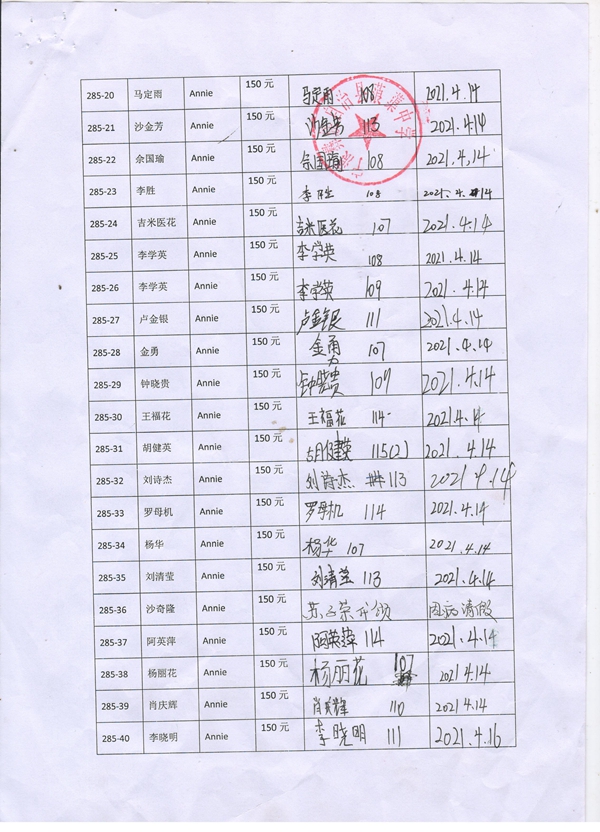 285-20 马定雨 Annie 150 元 马定雨 108 2021.4.14
285-21 沙金芳 Annie 150 元 沙金芳 113 2021.4.14
285-22 余国瑜 Annie 150 元 余国瑜 108 2021.4.14
285-23 李胜 Annie 150 元 李胜 108 2021.4.14
285-24 吉米医花 Annie 150 元 吉米医花 107 2021.4.14
285-25 李学英 Annie 150 元 李学英 108 2021.4.14
285-26 李学英 Annie 150 元 李学英 109 2021.4.14
285-27 卢金银 Annie 150 元 卢金银 111 2021.4.14
285-28 金勇 Annie 150 元 金勇 107 2021.4.14
285-29 钟晓贵 Annie 150 元 钟晓贵 109 2021.4.14
285-30 王福花 Annie 150 元 王福花 114 2021.4.14
285-31 胡健英 Annie 150 元 胡健英 115(2) 2021.4.14
285-32 刘诗杰 Annie 150 元 刘诗杰 113 2021.4.14
285-33 罗母机 Annie 150 元 罗母机 114 2021.4.14
285-34 杨华 Annie 150 元 杨华 107 2021.4.14
285-35 刘清莹 Annie 150 元 刘清莹 113 2021.4.14
285-36 沙奇隆 Annie 150 元 代领 因病请假
285-37 阿英萍 Annie 150 元 阿英萍 114 2021.4.14
285-38 杨丽花 Annie 150 元 杨丽花 107 2021.4.14
285-39 肖庆辉 Annie 150 元 肖庆辉 110 2021.4.14
285-40 李晓明 Annie 150 元 李晓明 111 2021.4.16